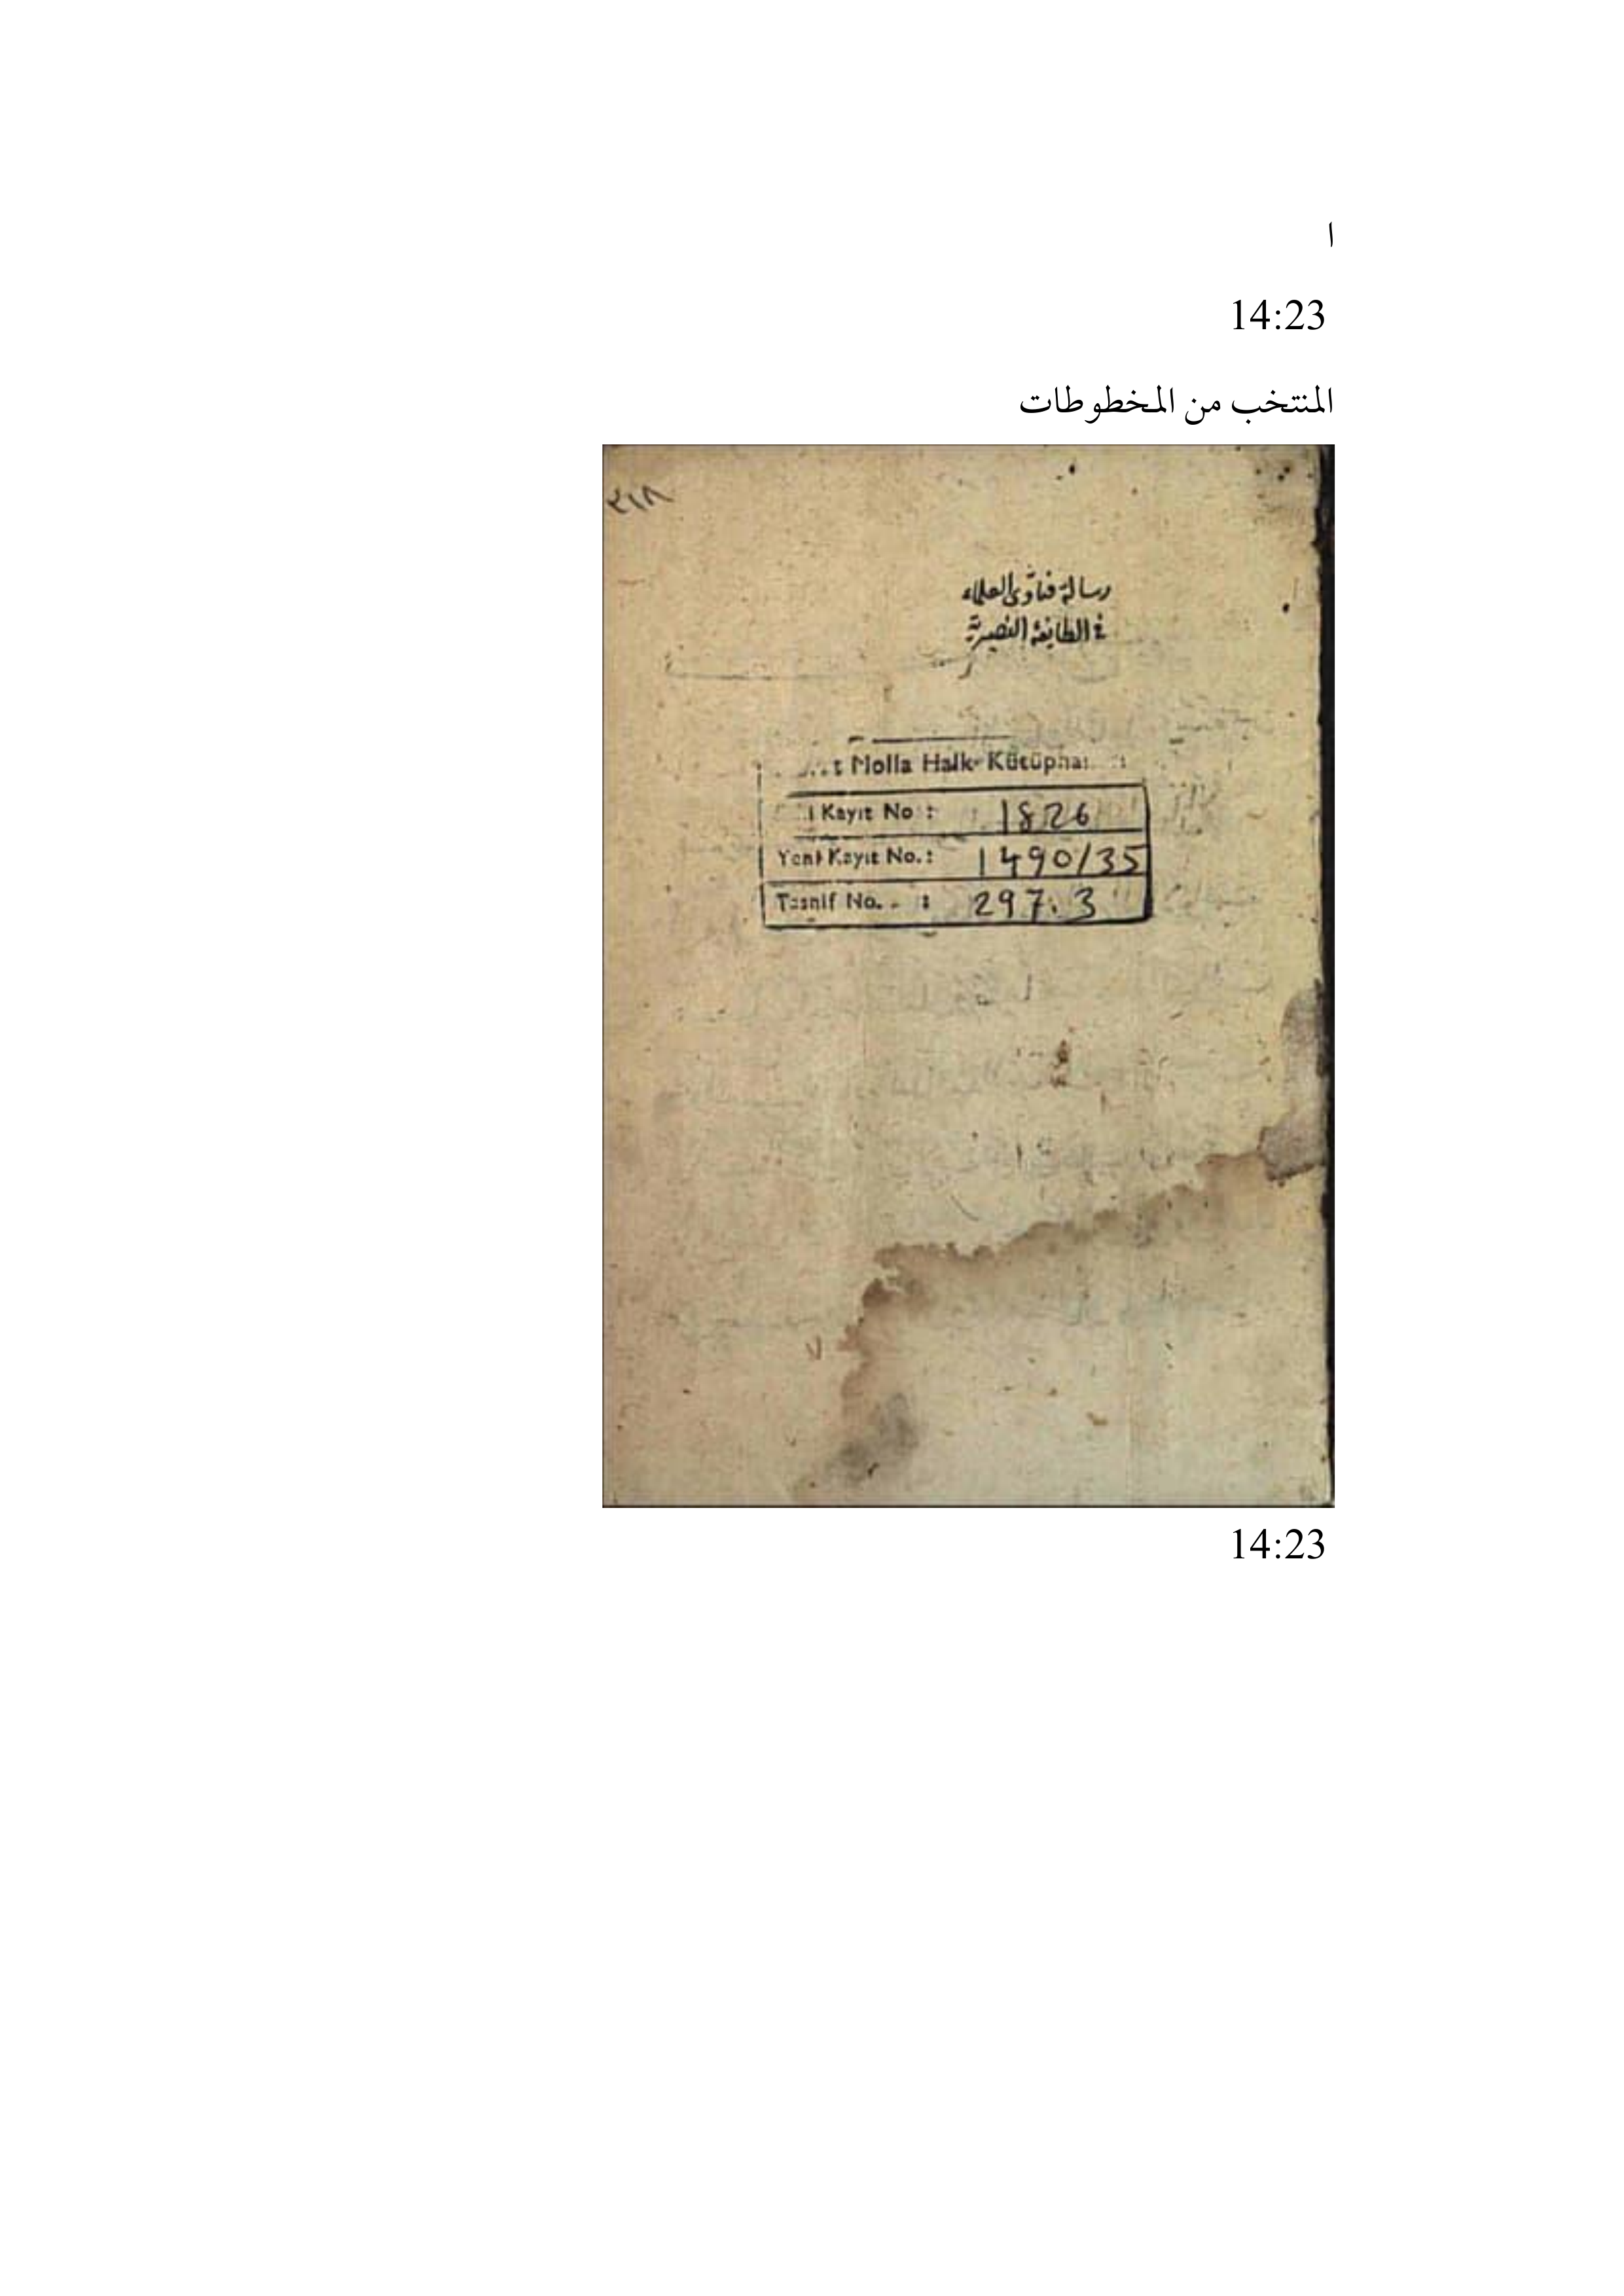 ا
14:23
المنتخب من المخطوطات
٣١٨
رسالة فتاوى العلماء
في الطايفة النصيرية
Molla Halk Kütüpha
Kayıt No : 1826
Yeni Kayıt No. : 1490/35
Tasnif No. : 297.3
14:23